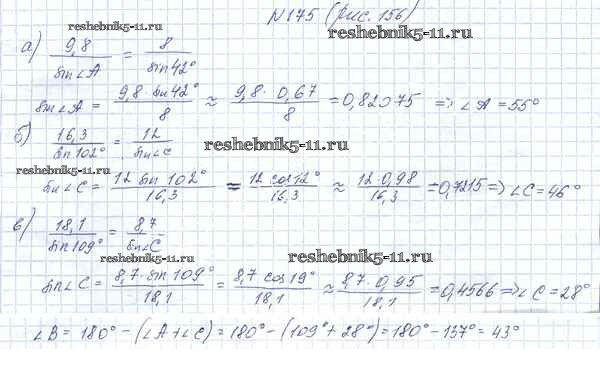 N175 (рис. 156)
reshebnik5-11.ru
reshebnik5-11.ru
а) 9,8 / sin∠A = 8 / sin42°
sin∠A = 9,8 · sin 42° / 8 ≈ 9,8 · 0,67 / 8 = 0,82075 => ∠A = 55°
б) 16,3 / sin102° = 12 / sin∠C
reshebnik5-11.ru
reshebnik5-11.ru
sin∠C = 12 sin 102° / 16,3 = 12 cos12° / 16,3 ≈ 12 · 0,98 / 16,3 = 0,7215 => ∠C = 46°
в) 18,1 / sin109° = 8,7 / sin∠C
reshebnik5-11.ru
reshebnik5-11.ru
sin∠C = 8,7 · sin 109° / 18,1 = 8,7 cos19° / 18,1 ≈ 8,7 · 0,95 / 18,1 = 0,4566 => ∠C = 28°
∠B = 180° - (∠A + ∠C) = 180° - (109° + 28°) = 180° - 137° = 43°